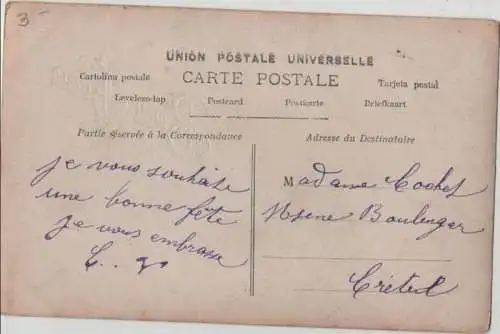 3-
UNION POSTALE UNIVERSELLE
CARTE POSTALE
Cartolina postale
Tarjeta postal
Levelezo-lap Postcard Postkarte Briefkaart
Partie réservée à la Correspondance
Adresse du Destinataire
je vous souhaite
une bonne fête
je vous embrasse
Madame Cochet
Usine Boulenger
Créteil